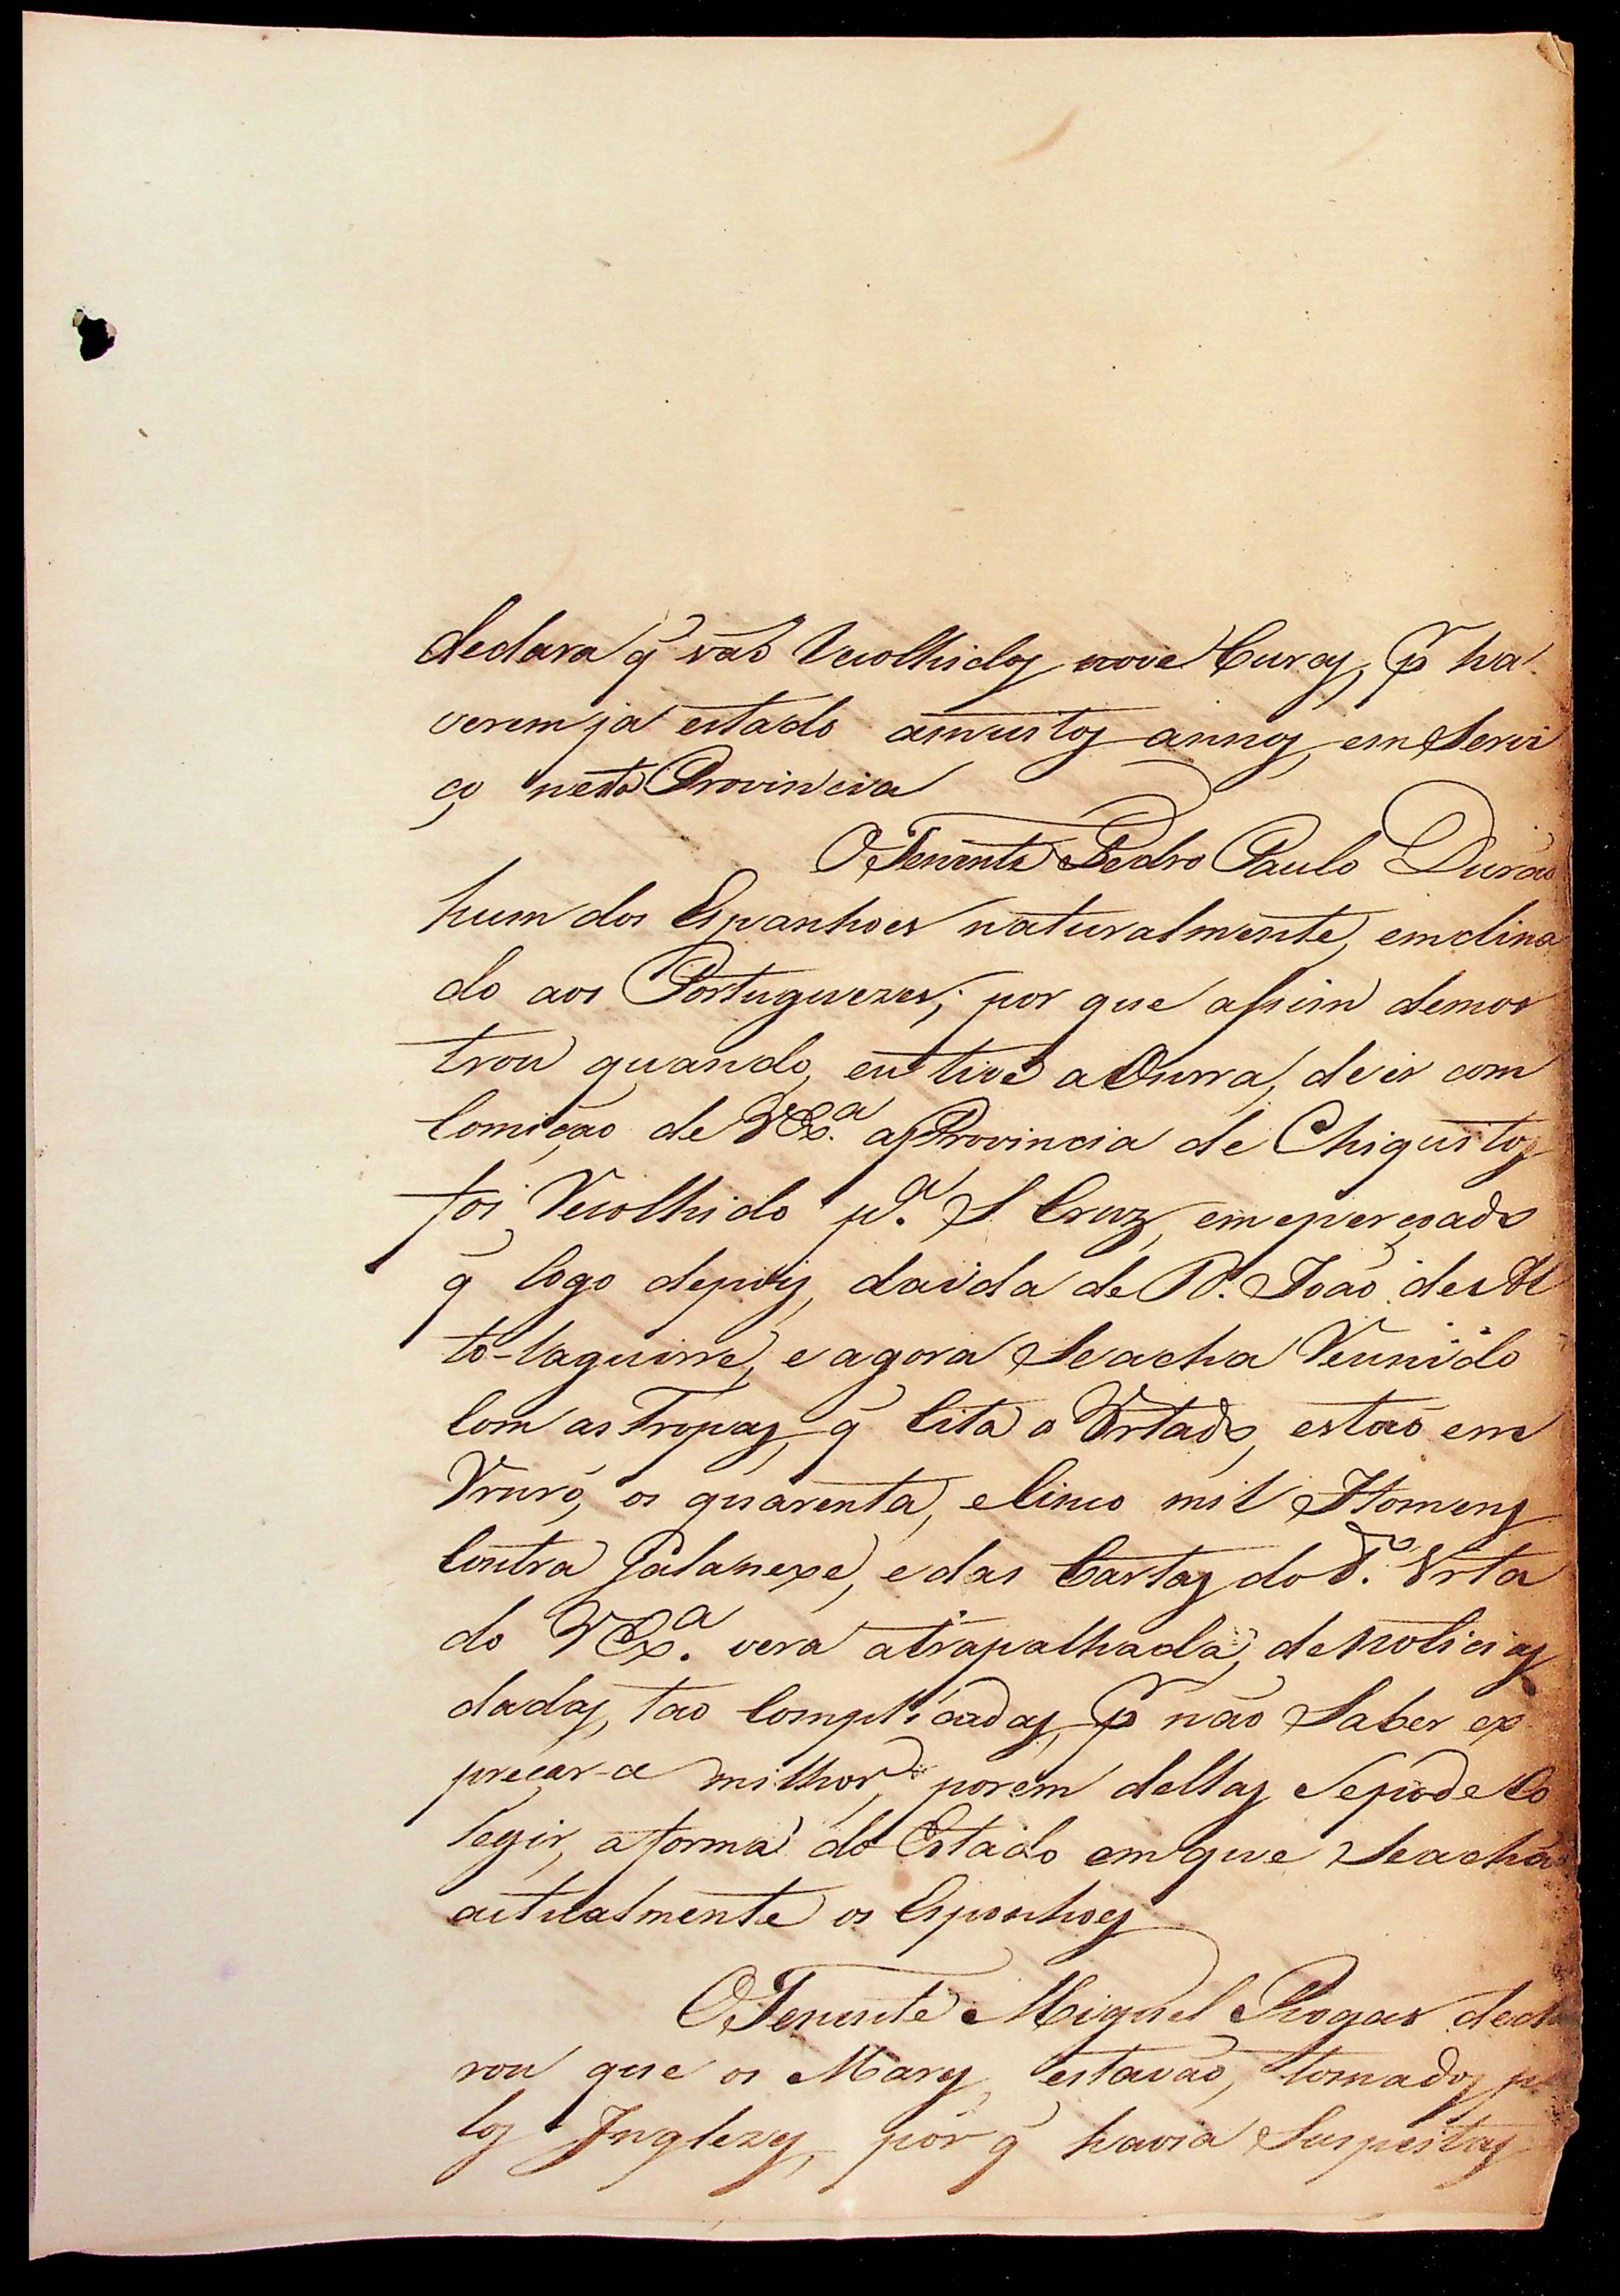 declara q̃ vaõ Recolhidos nove Curas, p.r ha
verem ja estado amuitos annos, em Servi
ço nesta Provincia
O Tenente Pedro Paulo Durão
hum dos Espanhoes naturalmente, emclina
do aos Portuguezes; por que assim demos
trou quando, eu tive a Onrra, de ir com
Comição de VEx.ª a Provincia de Chiquitos
foi Recolhido p.ª S Cruz, em
q̃ logo depois, da ida de D. João de Al
to-laguirre, e agora Se acha Reunido
Com as Tropas, q̃ Cita o Vrtado, estão em
Vruro, os quarenta, e Cinco mil Homens
Contra e das Cartas do d.º Vrta
do VEx.ª vera atrapalhada, de noticias
dadas, tão Complicadas, p.r não Saber ex
preçar-ce milhor, porem dellas Se pode Co
legir, a forma do Estado em que Se acha
actualmente os Espanhoes
O Tenente Miguel Rogas decla
rou que os Mares, estavão, tomados pe
los Inglezes, por q̃ havia Suspeitas